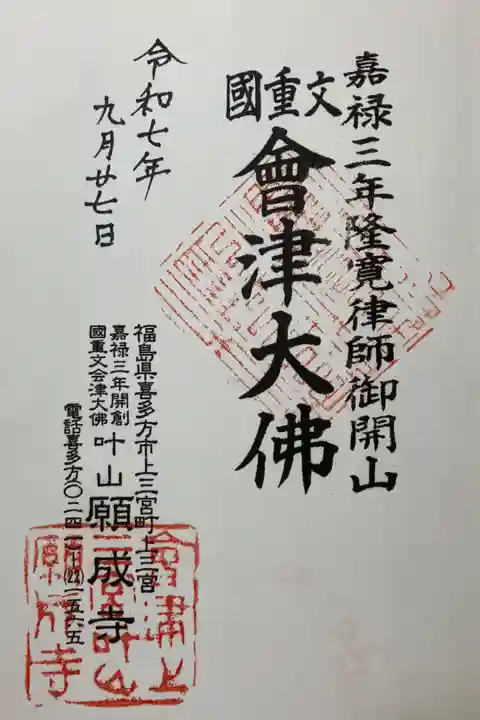 嘉禄三年隆寛律師御開山
國重文
會津大佛
令和七年
九月廿七日
福島県喜多方市上三宮町上三宮
嘉禄三年開創
國重文会津大佛
叶山願成寺
電話喜多方(〇二四一)(22)一五六五